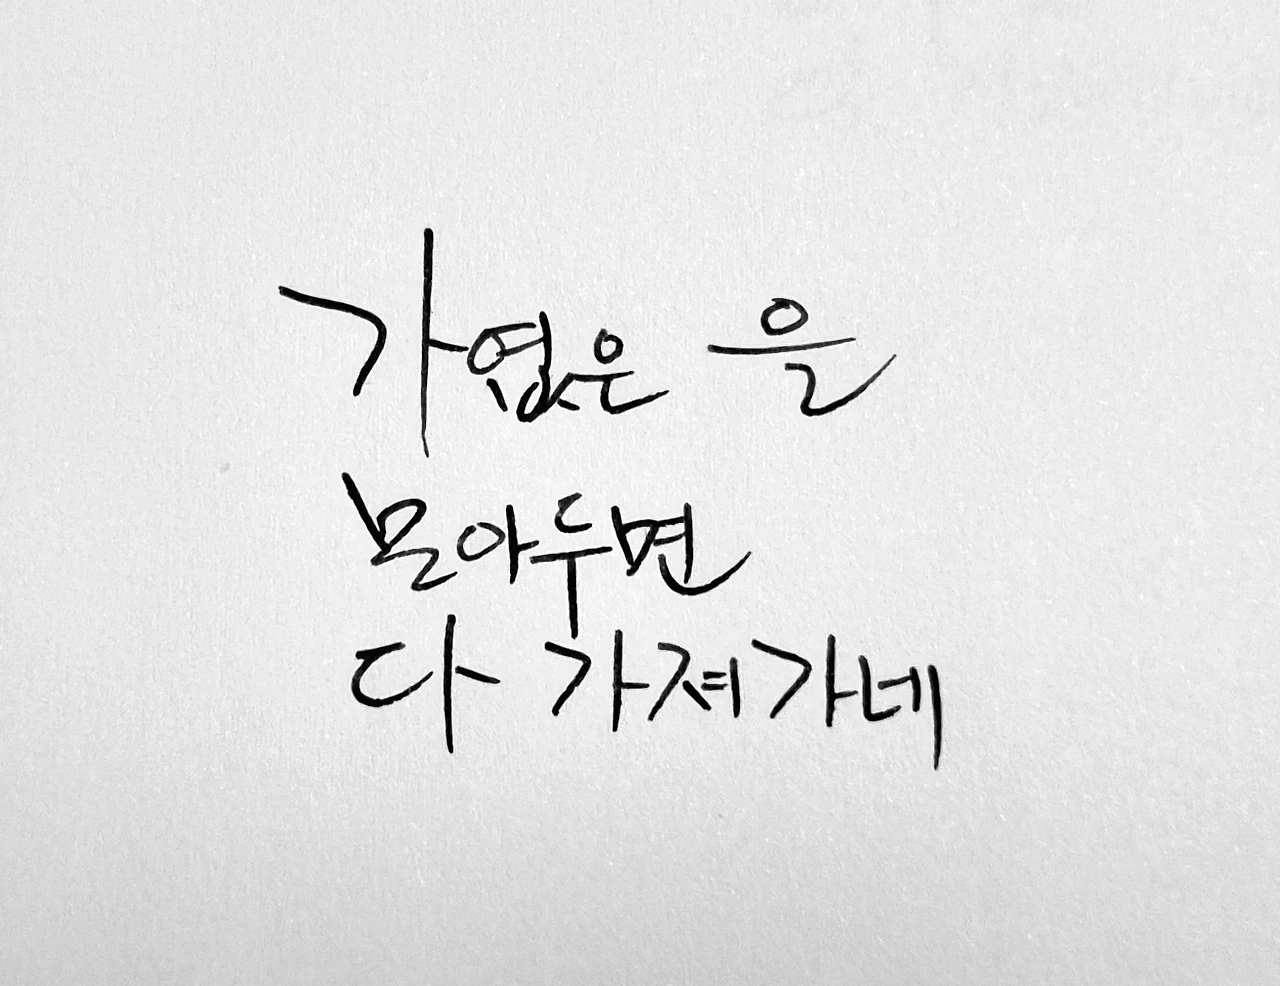 가엾은 을
모아두면
다 가져가네